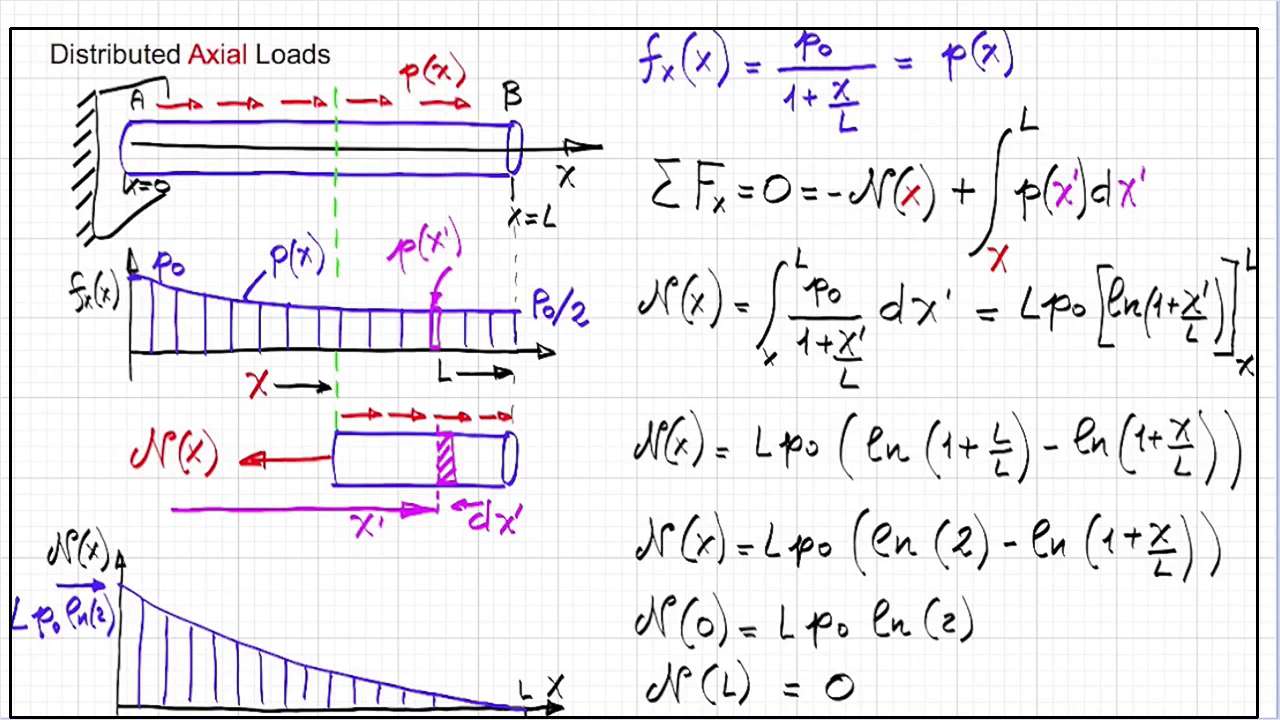 Distributed Axial Loads
p(x)
A
B
x=0
x
x=L
fx(x)
p0
p(x)
p(x')
p0/2
x
L
N(x)
x'
dx'
N(x)
L p0 ln(2)
L x
fx(x) = p0 / (1 + x/L) = p(x)
ΣFx = 0 = -N(x) + ∫_x^L p(x')dx'
N(x) = ∫_x^L p0 / (1 + x'/L) dx' = L p0 [ln(1 + x'/L)]_x^L
N(x) = L p0 (ln(1 + L/L) - ln(1 + x/L))
N(x) = L p0 (ln(2) - ln(1 + x/L))
N(0) = L p0 ln(2)
N(L) = 0